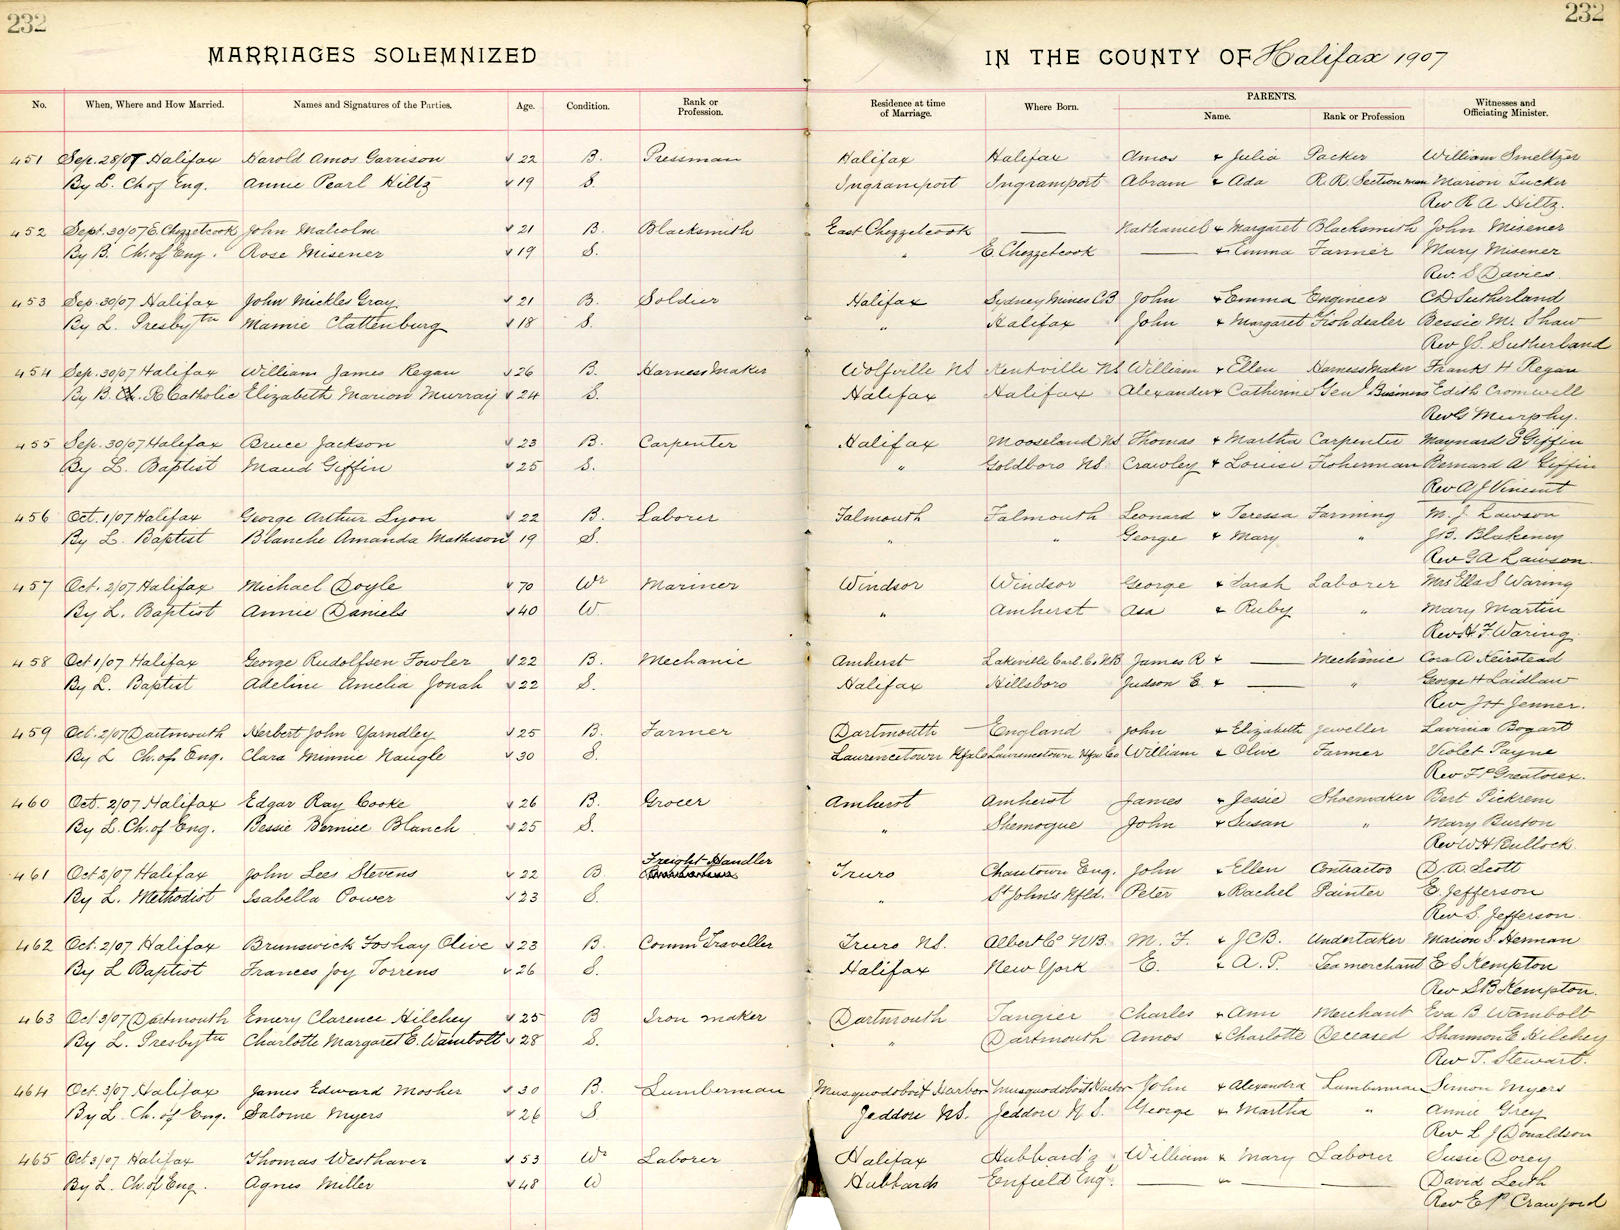 232 232
MARRIAGES SOLEMNIZED IN THE COUNTY OF Halifax 1907
No. When, Where and How Married. Names and Signatures of the Parties. Age. Condition. Rank or Profession. Residence at time of Marriage. Where Born. PARENTS. Name. Rank or Profession Witnesses and Officiating Minister.
451 Sep. 28/07 Halifax Harold Amos Garrison 22 B. Pressman Halifax Halifax Amos & Julia Packer William Smeltzer
By L. Ch of Eng. Annie Pearl Hiltz 19 S. Ingramport Ingramport Abram & Ada R.R. Section man Marion Tucker
Rev R A Hiltz.
452 Sept. 30/07 E. Chezzetcook John Malcolm 21 B. Blacksmith East Chezzetcook — Nathaniel & Margaret Blacksmith John Misener
By B. Ch. of Eng. Rose Misener 19 S. " E. Chezzetcook — & Emma Farmer Mary Misener
Rev. S Davies
453 Sep. 30/07 Halifax John Mickles Gray 21 B. Soldier Halifax Sydney Mines CB John & Emma Engineer CD Sutherland
By L. Presbytn Mamie Clattenburg 18 S. " Halifax John & Margaret Fishdealer Bessie M. Shaw
Rev J.S. Sutherland
454 Sep. 30/07 Halifax William James Regan 26 B. Harness Maker Wolfville NS Kentville NS William & Ellen Harness Maker Franks H Regan
By B. R Catholic Elizabeth Marion Murray 24 S. Halifax Halifax Alexander & Catherine Genl Business Edith Cromwell
Rev G Murphy.
455 Sep. 30/07 Halifax Bruce Jackson 23 B. Carpenter Halifax Mooseland NS. Thomas & Martha Carpenter Maynard E Giffin
By L. Baptist Maud Giffin 25 S. " Goldboro NS. Crawley & Louise Fisherman Bernard A Giffin
Rev A J Vincent
456 Oct. 1/07 Halifax George Arthur Lyon 22 B. Laborer Falmouth Falmouth Leonard & Teressa Farming M. J. Lawson
By L. Baptist Blanche Amanda Matheson 19 S. " " George & Mary " J.B. Blakeney
Rev G A Lawson
457 Oct. 2/07 Halifax Michael Doyle 70 Wr Mariner Windsor Windsor George & Sarah Laborer Mrs Ella S Waring
By L. Baptist Annie Daniels 40 W. " Amherst Asa & Ruby " Mary Martin
Rev H F Waring.
458 Oct 1/07 Halifax George Rudolfsen Fowler 22 B. Mechanic Amherst Lakeville Carl. Co NB James R & — Mechanic Cora A Keirstead
By L. Baptist Adeline Amelia Jonah 22 S. Halifax Hillsboro Judson E & — " George H Laidlaw
Rev J H Jenner.
459 Oct. 2/07 Dartmouth Herbert John Yarndley 25 B. Farmer Dartmouth England John & Elizabeth Jeweller Lavinia Bogart
By L Ch. of Eng. Clara Minnie Naugle 30 S. Laurencetown Hfx Co Laurencetown Hfx Co William & Olive Farmer Violet Payne
Rev F P Greatorex.
460 Oct. 2/07 Halifax Edgar Ray Cooke 26 B. Grocer Amherst Amherst James & Jessie Shoemaker Bert Pickrem
By L. Ch. of Eng. Bessie Bernice Blanch 25 S. " Shemogue John & Susan " Mary Burton
Rev W H Bullock.
461 Oct 2/07 Halifax John Lees Stevens 22 B Freight Handler Truro Eng. John & Ellen Contractor D. A. Scott
By L. Methodist Isabella Power 23 S. " St Johns Nfld. Peter & Rachel Painter E. Jefferson
Rev S. Jefferson.
462 Oct. 2/07 Halifax Brunswick Foshay Olive 23 B. Comml Traveller Truro NS. Albert Co NB. M. F. & J.C.B. Undertaker Marion S. Herman
By L Baptist Frances Joy Torrens 26 S. Halifax New York E. & A. P. Tea merchant E S Kempton
Rev S B Kempton.
463 Oct 3/07 Dartmouth Emery Clarence Hilchey 25 B Iron maker Dartmouth Tangier Charles & Ann Merchant Eva B Wambolt
By L. Presbytn Charlotte Margaret E. Wambolt 28 S. " Dartmouth Amos & Charlotte Deceased Shannon E Hilchey
Rev T. Stewart.
464 Oct. 3/07 Halifax James Edward Mosher 30 B. Lumberman Musquodoboit Harbor Musquodoboit Harbor John & Alexandra Lumberman Simon Myers
By L. Ch. of Eng. Salome Myers 26 S. Jeddore NS. Jeddore N S. George & Martha " Annie Grey
Rev L J Donaldson
465 Oct 3/07 Halifax Thomas Westhaver 53 Wr Laborer Halifax Hubbard's William & Mary Laborer Susie Dorey
By L. Ch. of Eng. Agnes Miller 48 W Hubbards Enfield Eng. — " — — David Leith
Rev E P Crawford